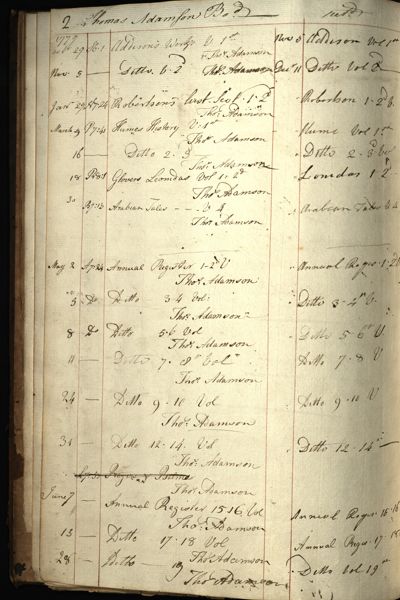 2 Thomas Adamson Bo^d
29 Addison's Works V. 1st Nov 5 Addison Vol 1st
Thos Adamson
Nov. 5 — Ditto 2d Thos Adamson Decr 11 Ditto Vol 2
Robertson's Hist Scot. 1-2d Robertson 1-2d
Thos Adamson
March 9 Humes History V. 1st Hume Vol 1st
Thos Adamson
16 — Ditto 2-3d Ditto 2-3d
Thos Adamson
18 Glovers Leonidas Vol 1-2d Leonidas 1-2
Thos Adamson
30 Arabian Tales - - 3-4 Arabian Tales 3-4
Thos Adamson
May 2 Annual Register 1-2d V Annual Regr 1-2d
Thos Adamson
5 Do Ditto 3-4 Vol: Ditto 3-4 V
Thos Adamson
8 Do Ditto 5-6 Vol Ditto 5-6 V
Thos Adamson
11 — Ditto 7-8 Vol Ditto 7-8 V
Thos Adamson
24 — Ditto 9-10 Vol Ditto 9-10 V
Thos Adamson
31 — Ditto 12-14. Vol Ditto 12-14
Thos Adamson
Thos Adamson
June 7 — Annual Register 15-16 Vol Annual Regr 15-16
Thos Adamson
13 — Ditto 17-18 Vol Annual Regr 17-18
Thos Adamson
28 — Ditto — 19 Ditto Vol 19
Thos Adamson